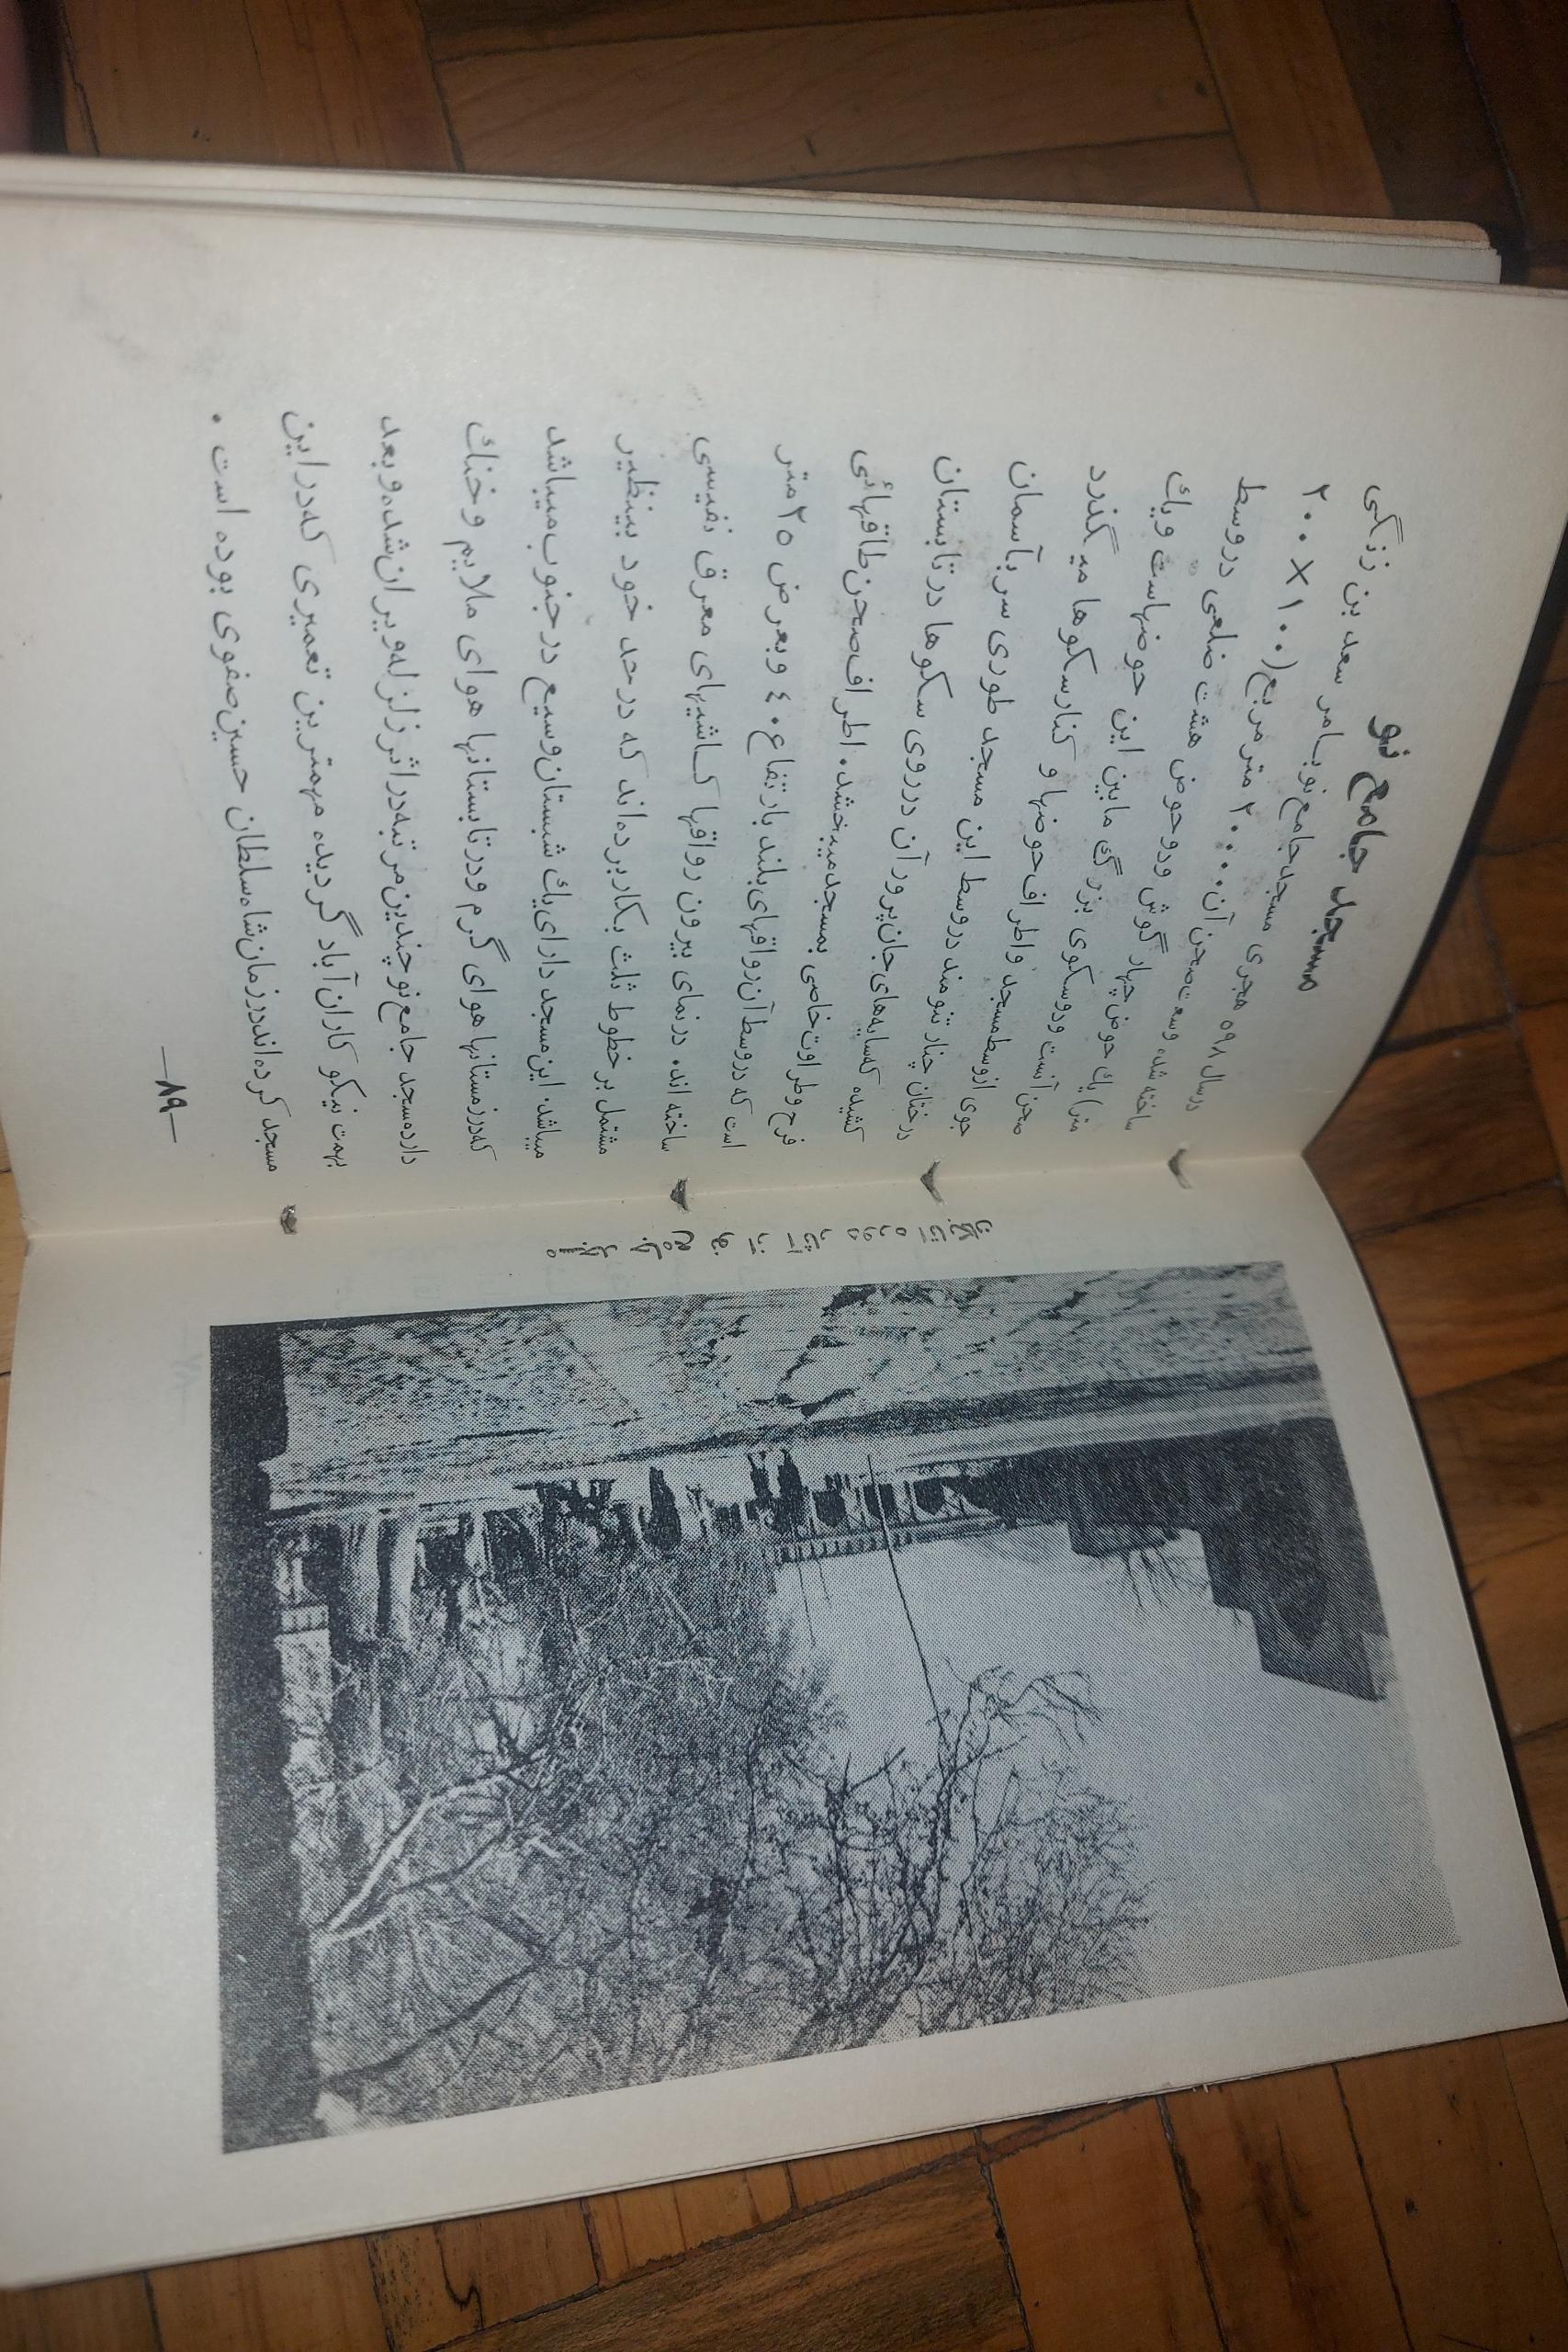 مسجد جامع نو
درسال ۵۹۸ هجری مسجد جامع نو بامر سعد بن زنگی
ساخته شده وسعت صحن آن ۲۰۰۰۰ متر مربع (۱۰۰ × ۲۰۰
متر) یك حوض چهار گوش ودو حوض هشت ضلعی دروسط
صحن آنست ودوسکوی بزرگ مابین این حوضهاست ویك
جوی ازوسط مسجد واطراف حوضها و کنار سکوها میگذرد
درختان چنار تنومند دروسط این مسجد طوری سر بآسمان
کشیده که سایه های جان پرور آن درروی سکوها در تابستان
فرح وطراوت خاصی بمسجد میبخشد. اطراف صحن طاقهائی
است که دروسط آن رواقهای بلند بارتفاع ۴۰ وبعرض ۲۵ متر
ساخته اند. درنمای بیرون رواقها کاشیهای معرق نفیسی
مشتمل بر خطوط ثلث بکار برده اند که درحد خود بینظیر
میباشد. این مسجد دارای یك شبستان وسیع در جنوب میباشد
که در زمستانها هوای گرم ودر تابستانها هوای ملایم وخنك
دارد مسجد جامع نو چندین مرتبه در اثر زلزله ویران شده وبعد
بهمت نیکو کاران آباد گردیده مهمترین تعمیری که در این
مسجد کرده اند در زمان شاه سلطان حسین صفوی بوده است .
—۸۹—
مسجد جامع نو از آثار دوره اتابکان